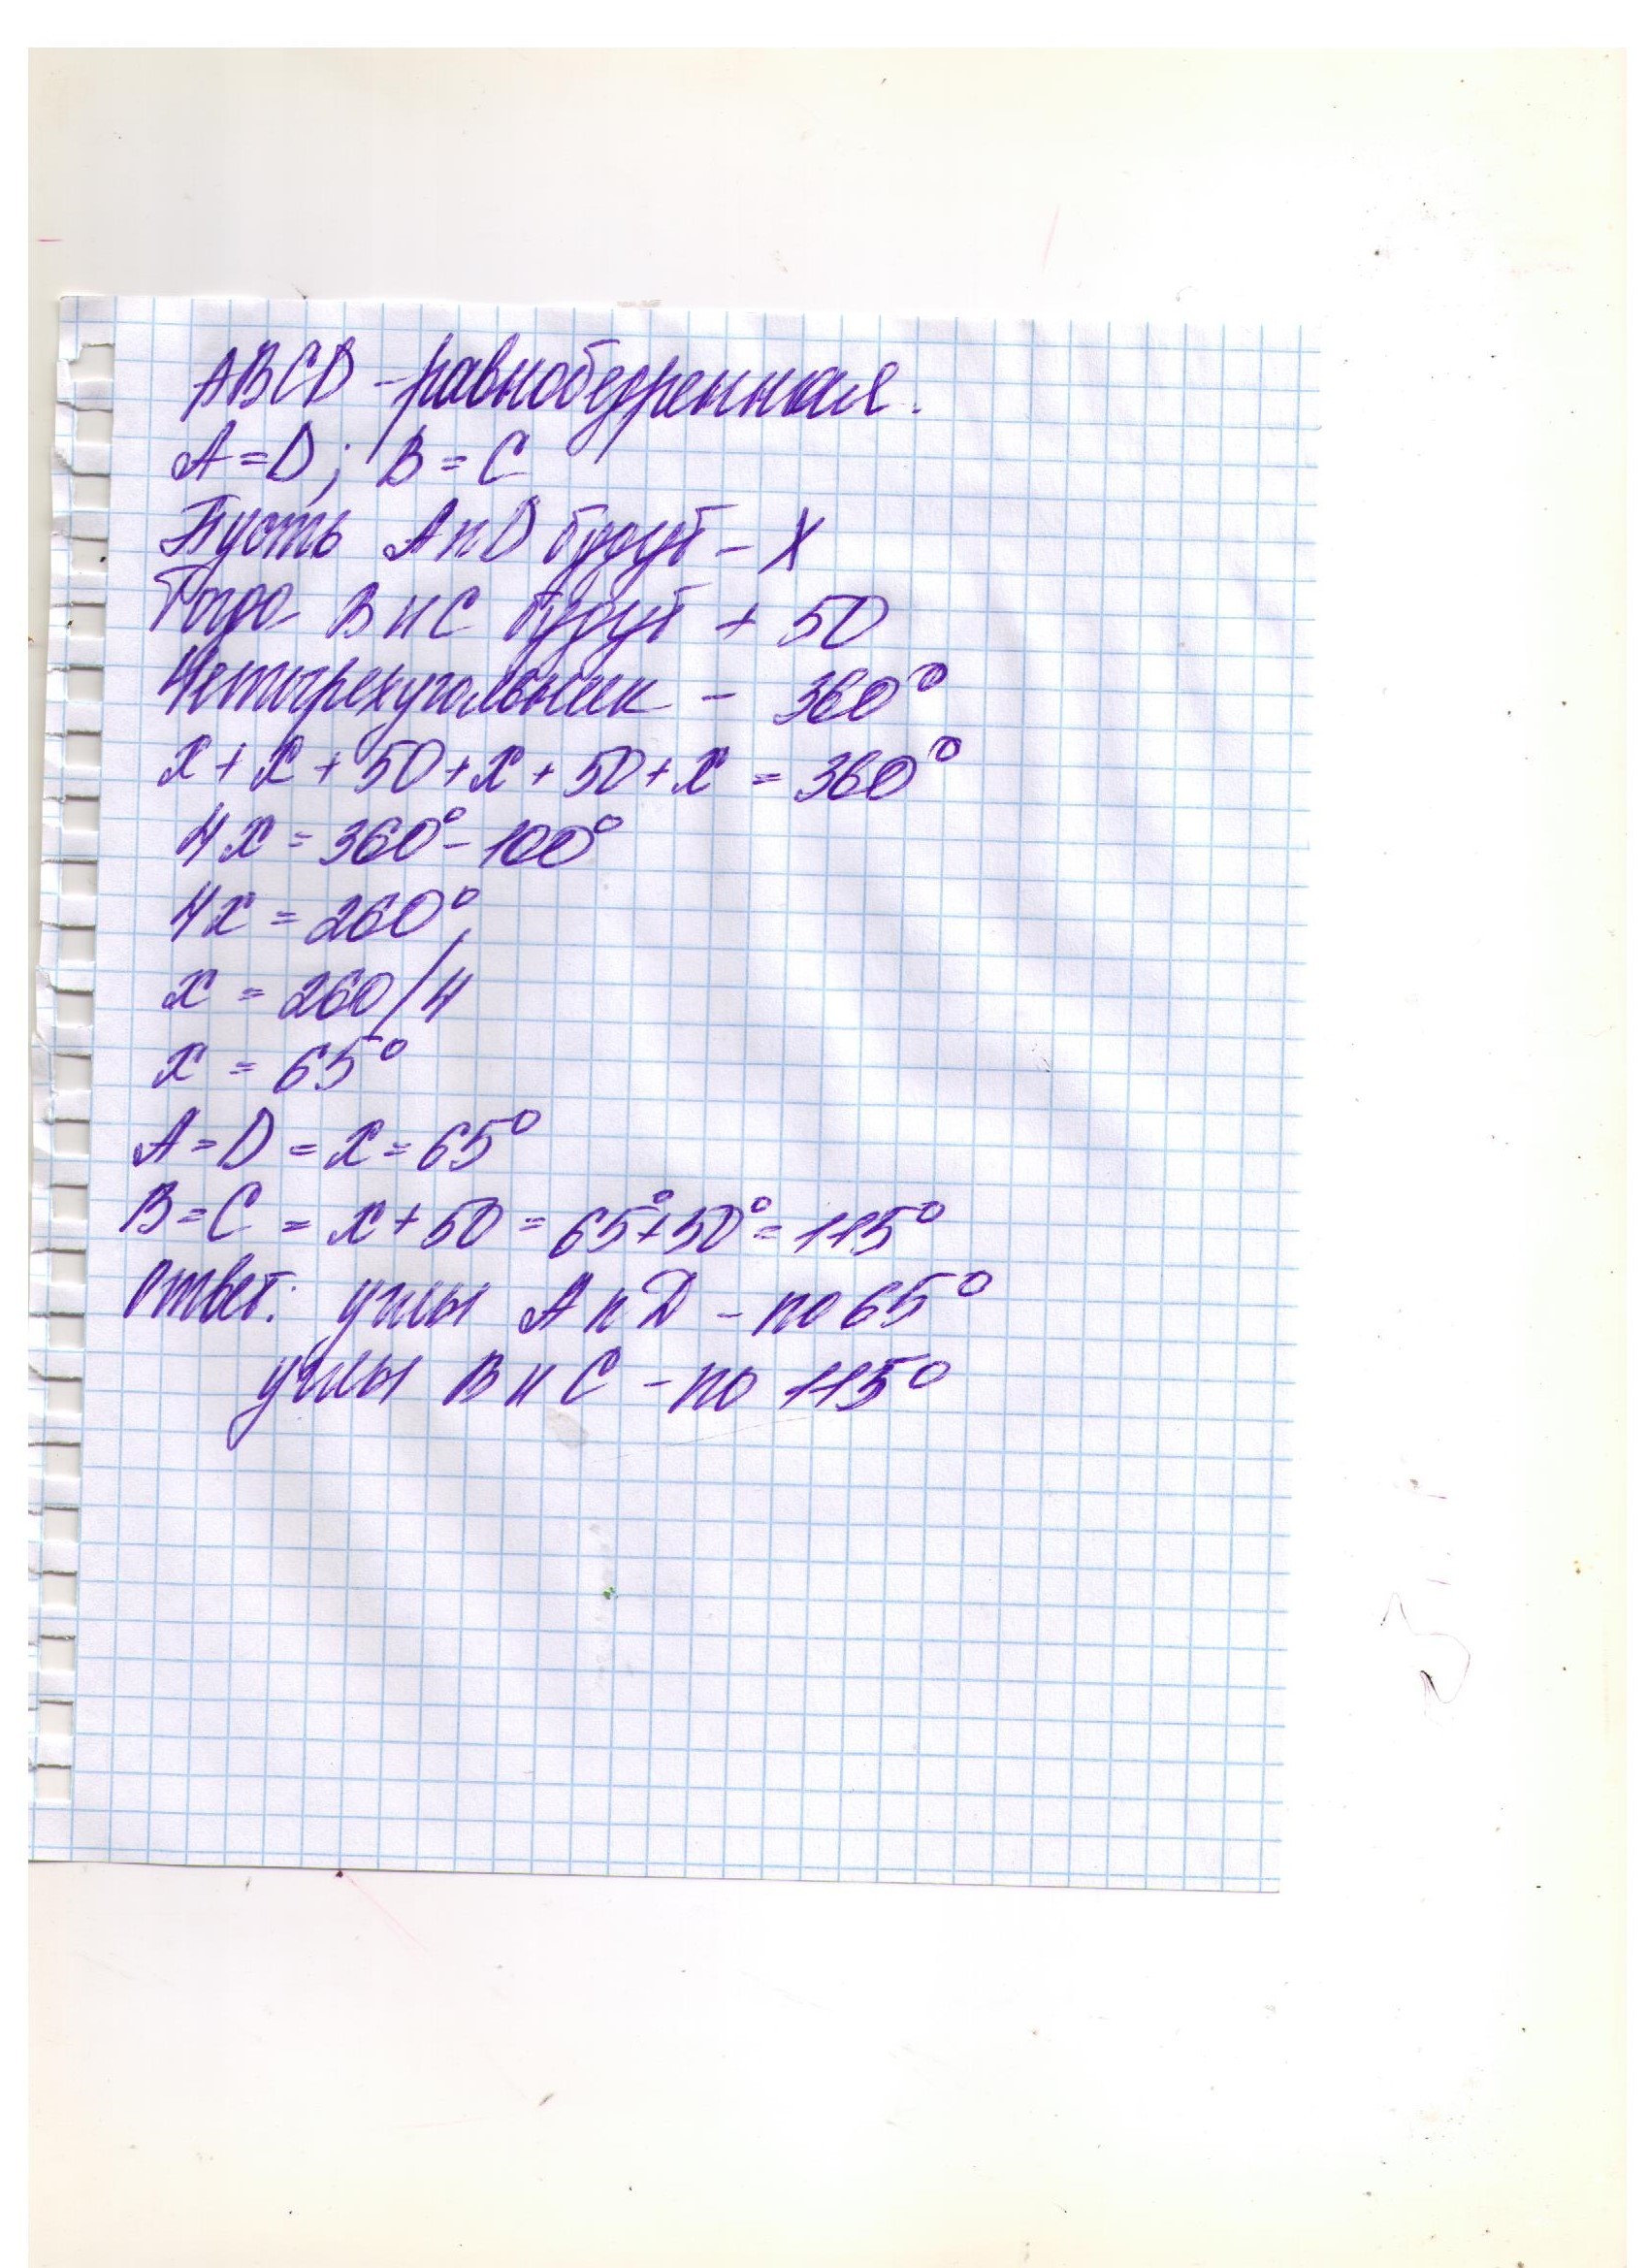 ABCD - равнобедренная.
A = D; B = C
Пусть A и D будут - X
Тогда B и C будут + 50
Четырехугольник - 360°
x + x + 50 + x + 50 + x = 360°
4x = 360° - 100°
4x = 260°
x = 260/4
x = 65°
A = D = x = 65°
B = C = x + 50 = 65° + 50° = 115°
Ответ: углы A и D - по 65°
углы B и C - по 115°